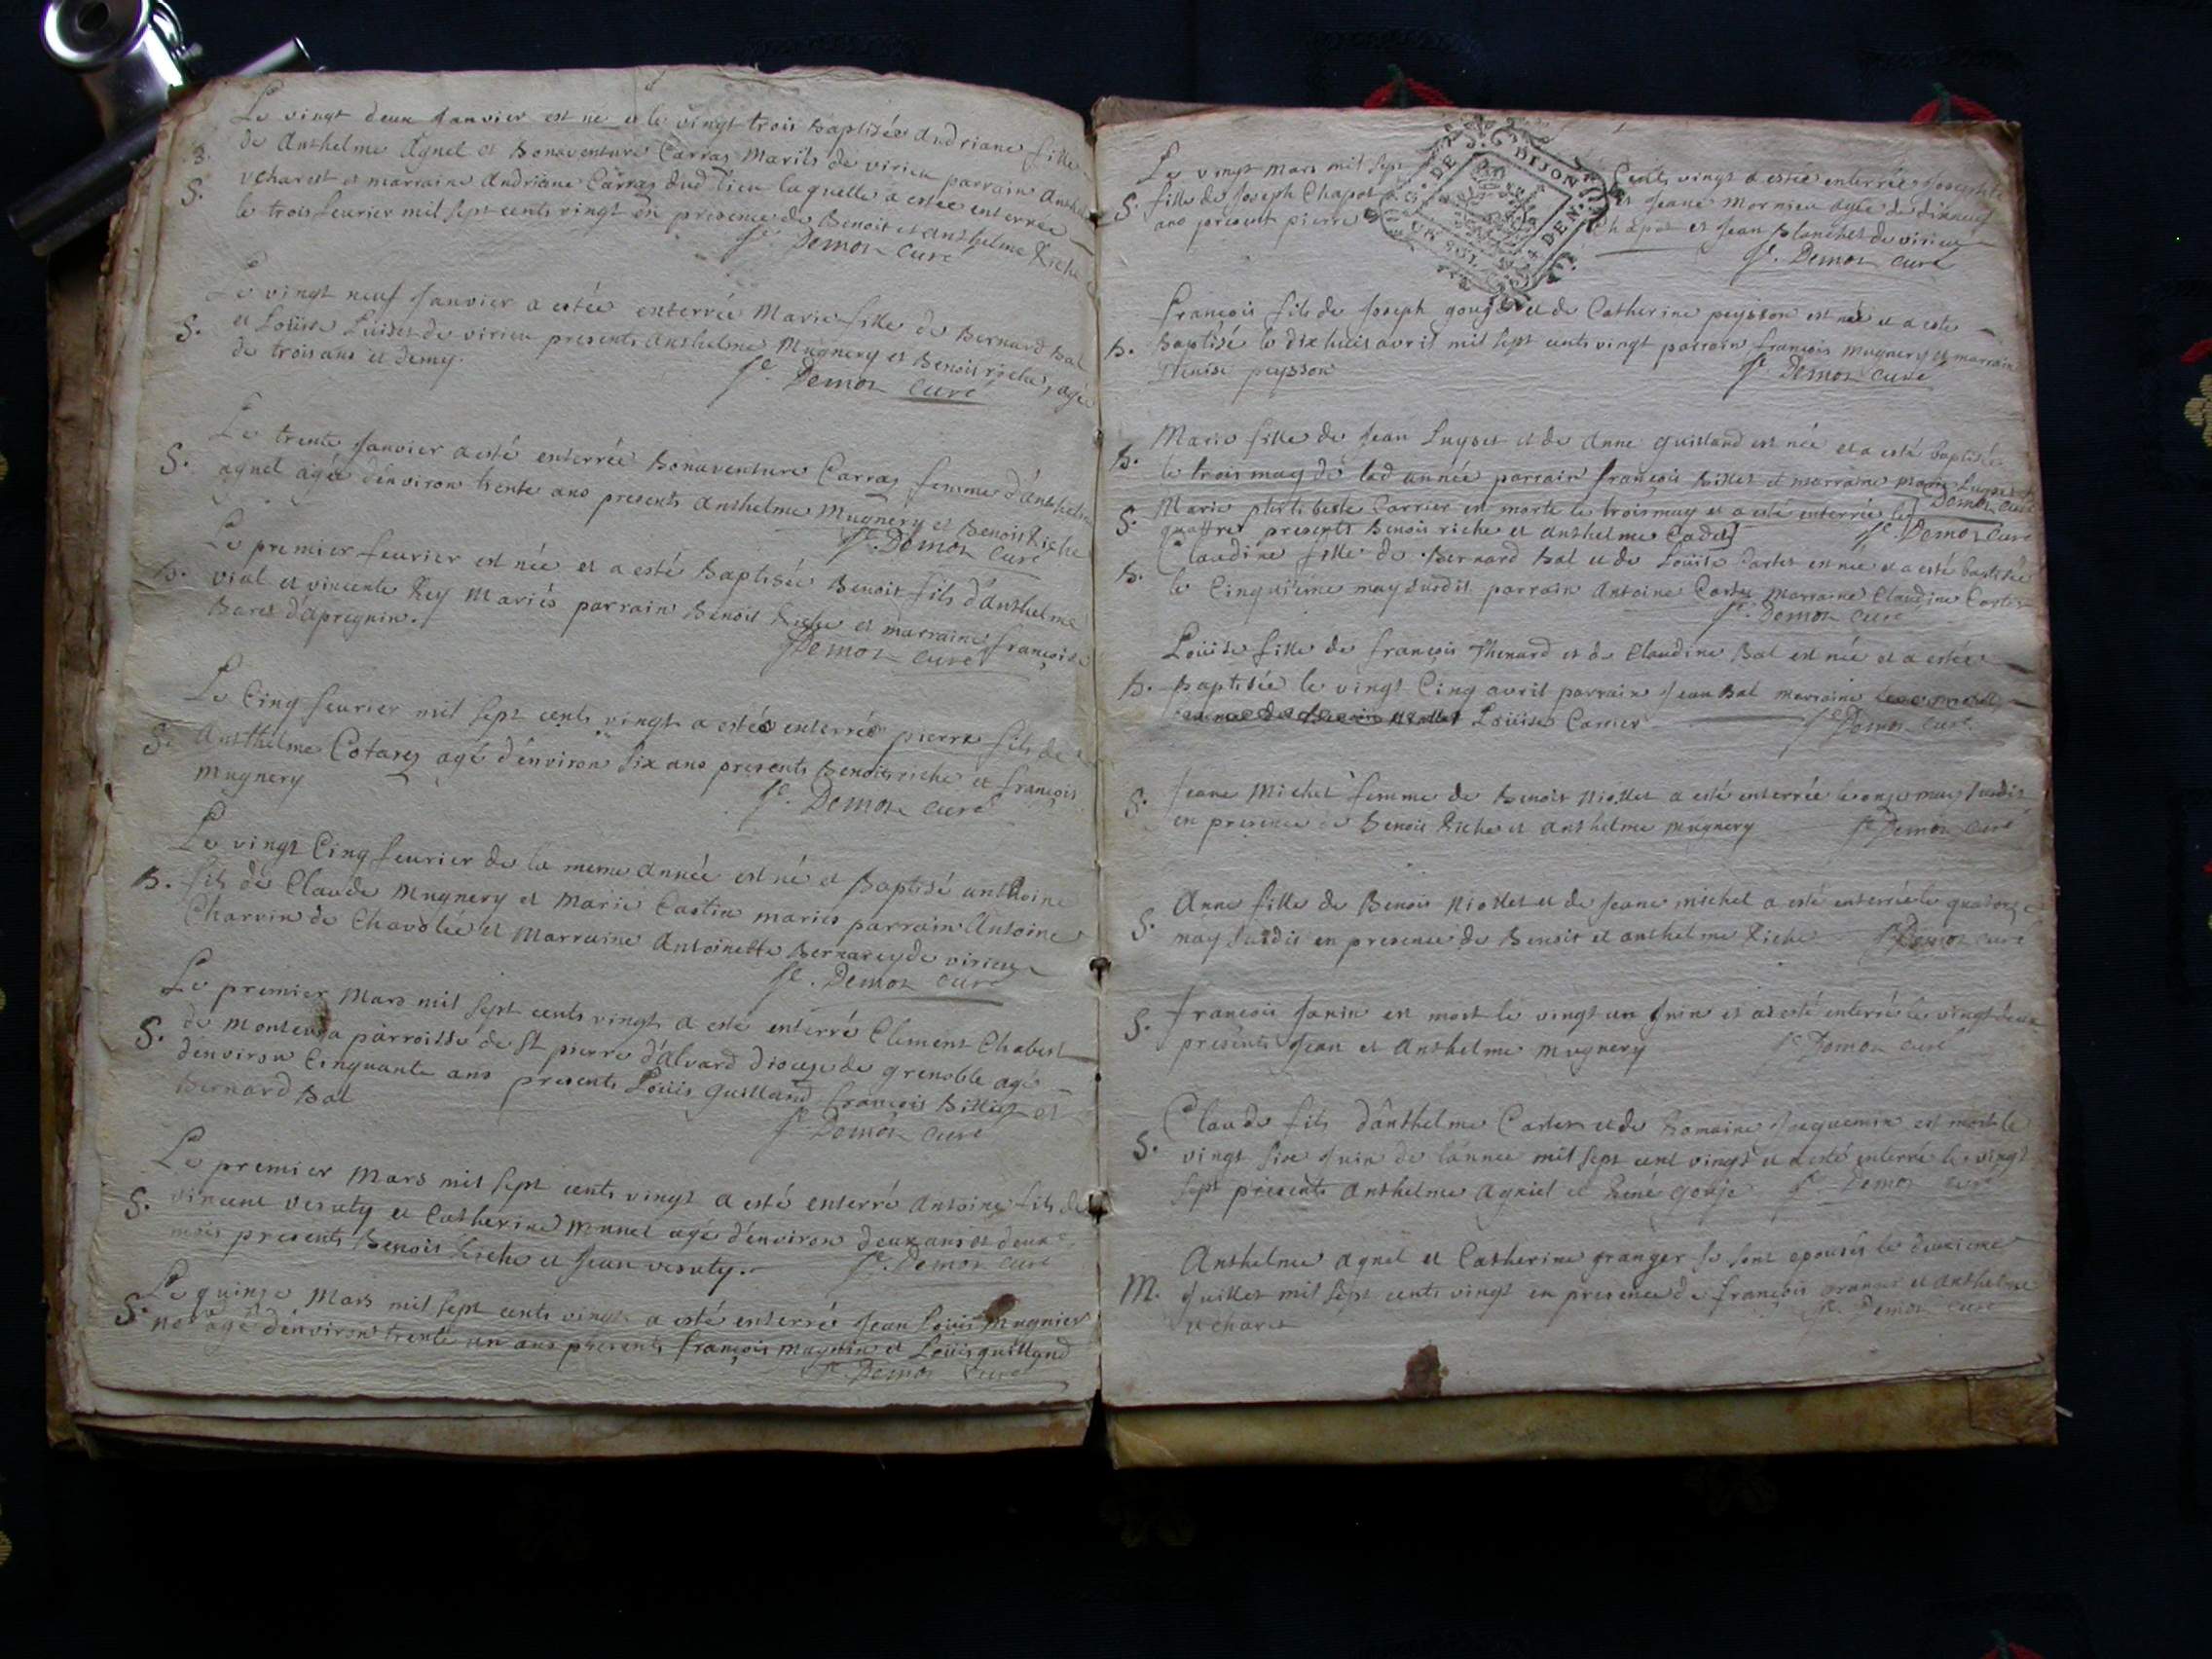 Le vingt deux Janvier est né et le vingt trois baptisée Andriane fille
B. de Anthelme Agnel et Bonaventure Carraz Mariés de virieu parrain Anth
S. ucharest et marraine Andriane Carraz dud lieu laquelle a estée enterrée
le trois feurier mil sept cents vingt en presence de Benoit et anthelme Riche
Sr. Demoz curé
Le vingt neuf Janvier a estée enterrée Marie fille de Bernard bal
S. et Loüise Luiset de virieu presents Anthelme Mugnery et Benoit riche, agée
de trois ans et demy.
Sr. Demoz curé
Le trente Janvier a esté enterrée Bonaventure Carraz femme d'Anthelme
S. agnel agée d'environ trente ans presents Anthelme Mugnery et Benoit Riche
Sr. Demoz curé
Le premier feurier est née et a esté Baptisée Benoit fils d'Anthelme
b. vial et vincente Rey Mariés parrain Benoit Riche et marraine françoise
d'apregnin.
Demoz curé
Le Cinq feurier mil sept cents vingt a estée enterrée pierre fils de
S. Anthelme Cotarez agé d'environ six ans presents Benoit riche et françois
Mugnery
Sr. Demoz curé
Le vingt Cinq feurier de la meme Année est né et Baptisé anthoine
B. fils de Claude Mugnery et Marie Castin mariés parrain Antoine
Charvin de et Marraine Antoinette de virieu
Sr. Demoz curé
Le premier Mars mil sept cents vingt a esté enterré Clement Chabert
S. de parroisse de St pierre d'Alvard diocese de grenoble agé
d'environ Cinquante ans presents Loüis Guilland françois Billiet et
Bernard Bal
Sr Demoz curé
Le premier Mars mil sept cents vingt a esté enterré Antoine fils de
S. vincent veruty et Catherine agé d'environ deux ans et deux
mois presents Benoit Riche et Jean veruty.
Sr. Demoz curé
Le quinze Mars mil sept cents vingt a esté enterré Jean Loüis Mugnier
S. agé d'environ trente un ans presents françois et Loüis guilland
Sr. Demoz curé
Le vingt Mars mil sept cents vingt a estée enterrée Josephte
S. fille de Joseph Chapot et Jeane Mornieu agée de dixneuf
ans present pierre Chapot et Jean planchet de virieu
Sr. Demoz curé
DE DIJON
françois fils de Joseph gouge et de Catherine peysson est né et a esté
b. Baptisé le dix huit avril mil sept cents vingt parrain françois Mugnery et marraine
Denise peysson
Sr Demoz curé
Marie fille de Jean Luyset et de Anne guilland est née et a esté baptisée
b. le trois may de lad année parrain françois billet et marraine Marie Luyset
Demoz curé
S. Marie Carrier est morte le trois may et a esté enterrée le
quattre presents Benoit riche et Anthelme Cadet
Sr. Demoz curé
Claudine fille de Bernard Bal et de Loüise Cartet est née et a esté baptisée
b. le Cinquieme may susdit parrain Antoine Cartet Marraine Claudine Cartet
Sr. Demoz curé
Loüise fille de françois Thenard et de Claudine Bal est née et a estée
b. baptisée le vingt Cinq avril parrain Jean Bal marraine
Loüise Carrier
Sr Demoz curé
S. Jeane Michel femme de Benoit Niollet a esté enterrée le onze may susdit
en presence de Benoit Riche et Anthelme Mugnery
Sr Demoz curé
Anne fille de Benoit Niollet et de Jeane michel a esté enterrée le quatorze
S. may susdit en presence de Benoit et anthelme Riche
Sr Demoz curé
S. françois Janin est mort le vingt un Juin et a esté enterré le vingt deux
presents Jean et Anthelme Mugnery
Sr Demoz curé
Claude fils d'Anthelme Carter et de Romaine Jaquemin est mort le
S. vingt six Juin de l'année mil sept cent vingt et a esté enterré le vingt
sept presents Anthelme Agniel et René gouje
Sr. Demoz curé
Anthelme Agnel et Catherine granger se sont epousés le deuxieme
M. Juillet mil sept cents vingt en presence de françois granger et Anthelme
ucharet
Sr. Demoz curé